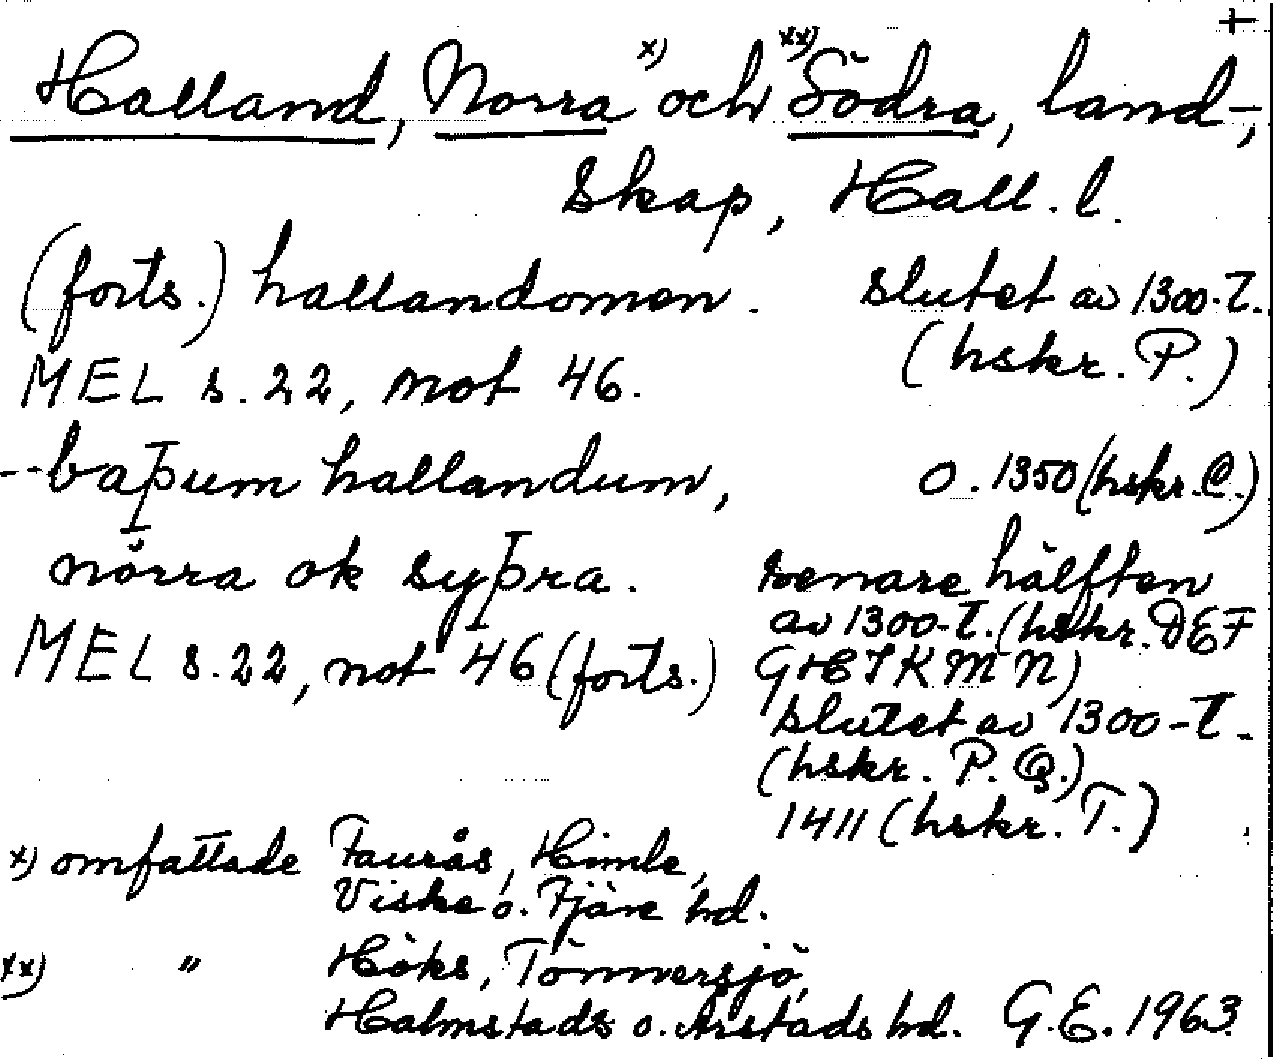 †
Halland, Norra x) och xx) Södra, land-,
skap, Hall. l.
(forts.) hallandomen. slutet av 1300-t.
(hskr. P.)
MEL s. 22, not 46.
--baþum hallandum, o. 1350 (hskr. C.)
nörra ok syþra. senare hälften
av 1300-t. (hskr. DEF
MEL s. 22, not 46 (forts.) GHIKMN)
slutet av 1300-t.
(hskr. P. Q.)
1411 (hskr. T.)
x) omfattade Faurås, Himle,
Viske o. Fjäre hd.
xx) " Höks, Tönnersjö,
Halmstads o. Årstads hd. G.E. 1963